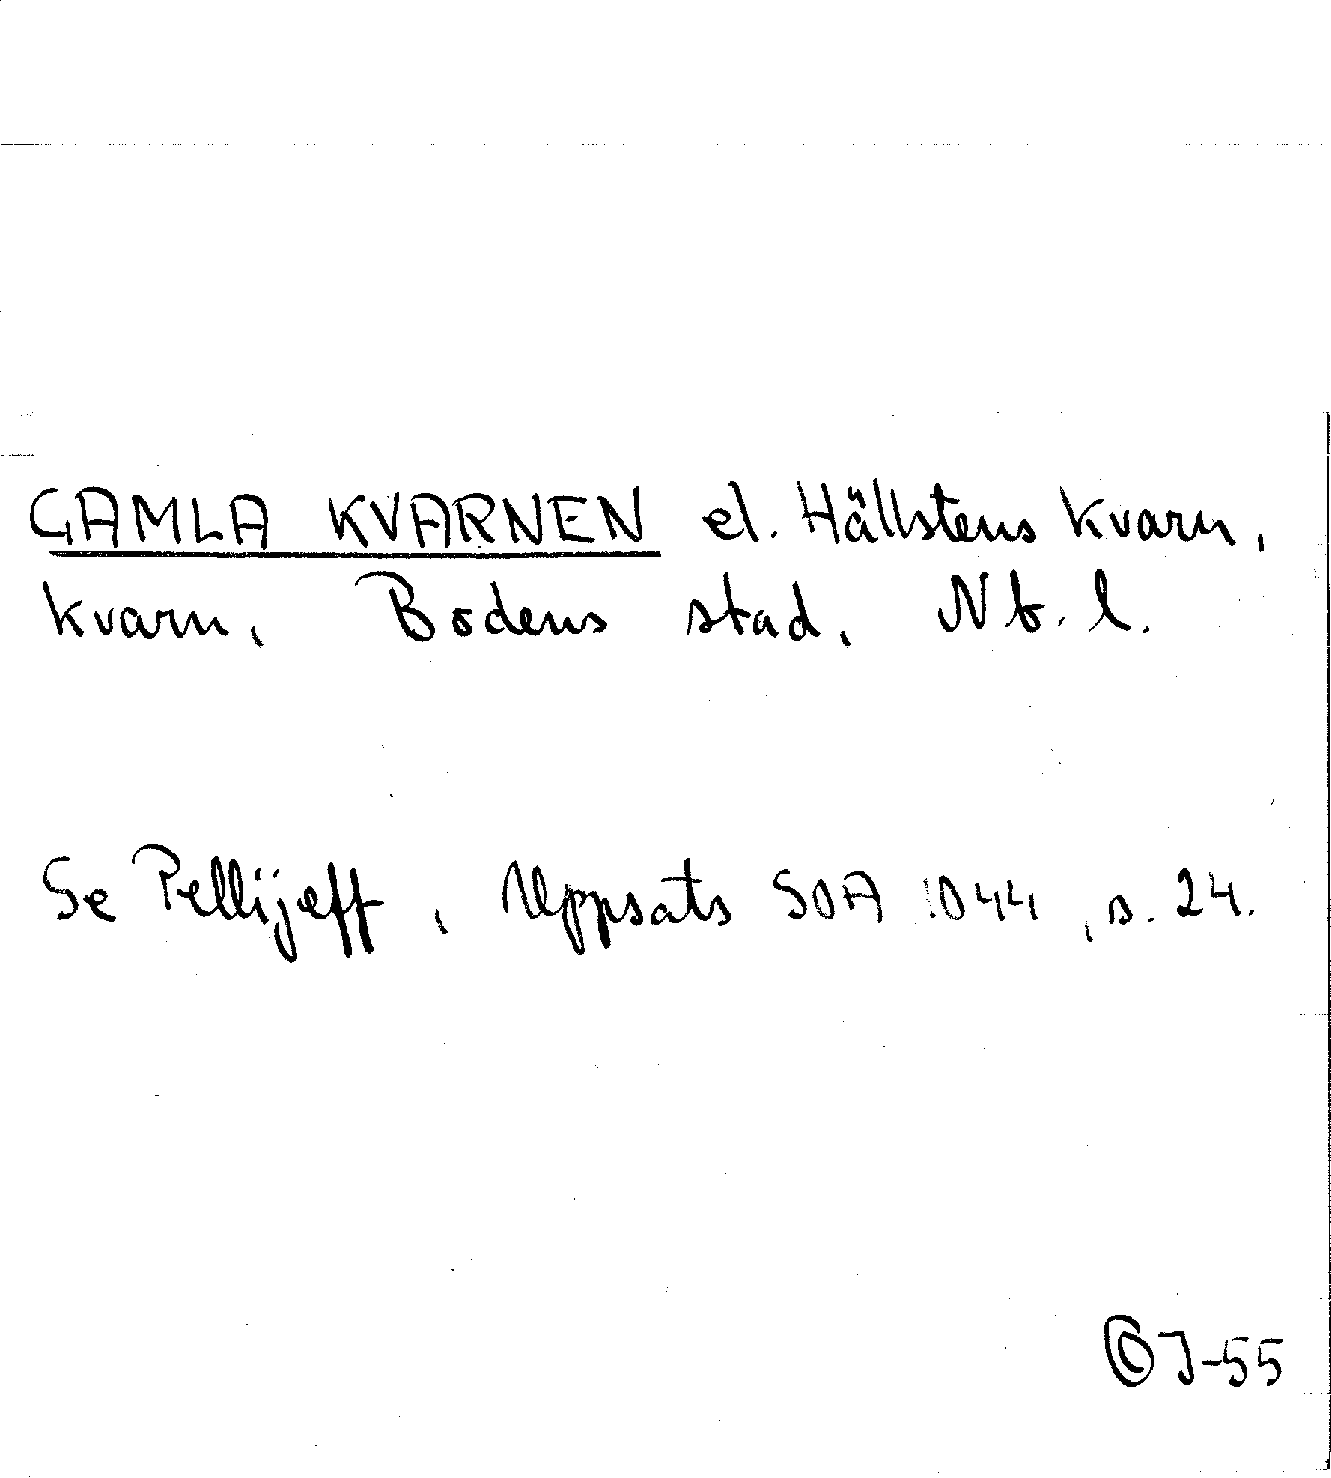 GAMLA KVARNEN el. Hällstens kvarn,
kvarn, Bodens stad, Nb. l.
Se Pellijeff, Uppsats SOA 1044, s. 24.
© J-55